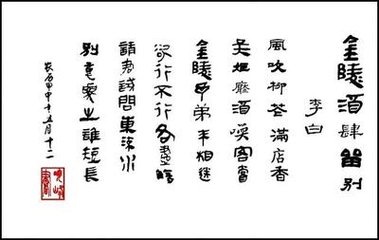 金陵酒肆留别
李白
風吹柳花滿店香
吴姬壓酒喚客嘗
金陵子弟来相送
欲行不行各盡觴
請君試問東流水
别意與之誰短長
农历甲申年五月十二